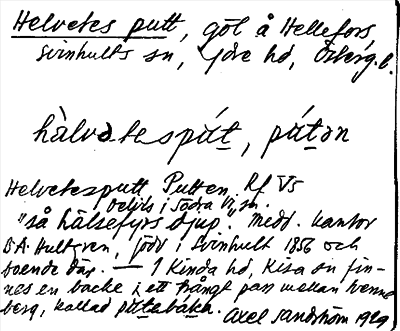 Helvetes putt, göl å Hellefors,
Svinhults sn, Ydre hd, Östergl.
hàlvətespút, pútən
Helvetesputt, Putten, Rf V5
delvis i Södra Vi sn.
"så hälsefyrs djup". Medd. kantor
Hultgren, född i Svinhult 1856 och
boende där. — I Kinda hd, Kisa sn fin-
nes en backe i ett trångt pass mellan tvenne
berg, kallad
Axel Sandström 1929,